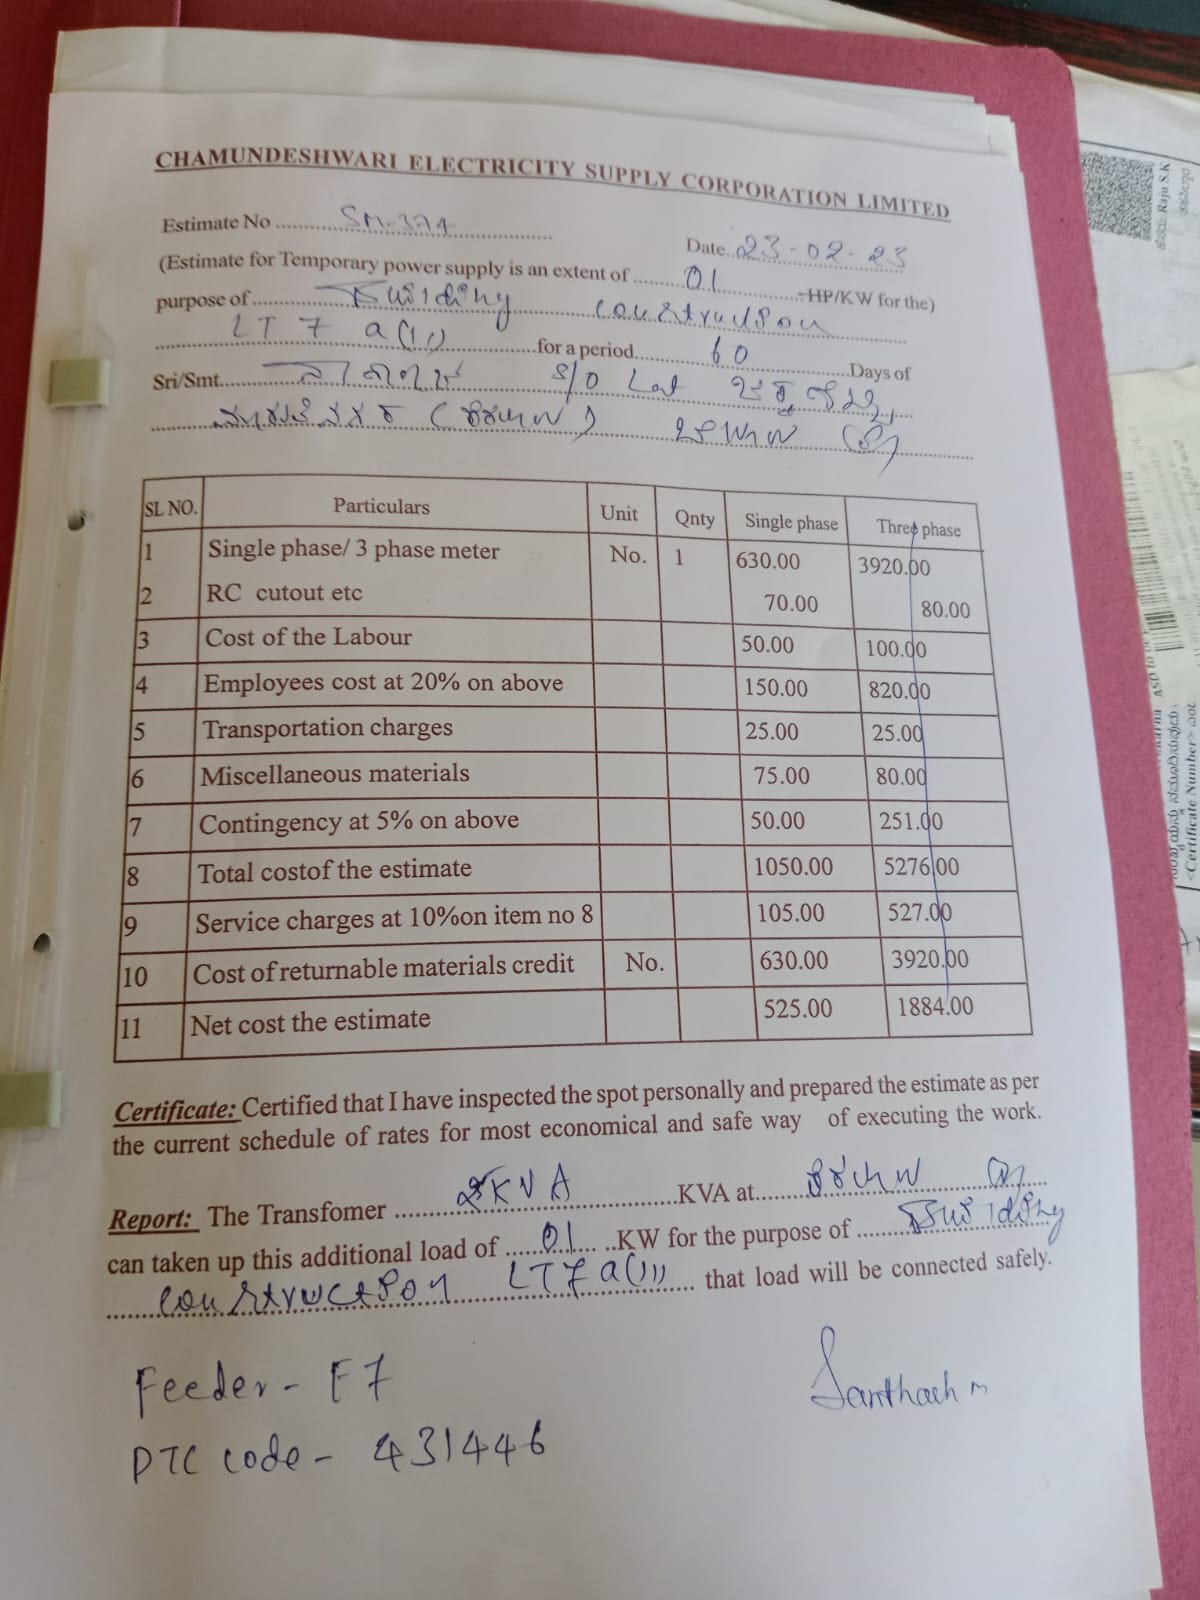 CHAMUNDESHWARI ELECTRICITY SUPPLY CORPORATION LIMITED
Estimate No .............. SM-374
Date.. 23-02-23
(Estimate for Temporary power supply is an extent of ....... 01 ..... HP/KW for the)
purpose of ........ Building Construction
LT 7 a(1) ........ for a period....... 60 ........ Days of
Sri/Smt........ S/O Lat
SL NO. Particulars Unit Qnty Single phase Three phase
1 Single phase/ 3 phase meter No. 1 630.00 3920.00
2 RC cutout etc 70.00 80.00
3 Cost of the Labour 50.00 100.00
4 Employees cost at 20% on above 150.00 820.00
5 Transportation charges 25.00 25.00
6 Miscellaneous materials 75.00 80.00
7 Contingency at 5% on above 50.00 251.00
8 Total costof the estimate 1050.00 5276.00
9 Service charges at 10%on item no 8 105.00 527.00
10 Cost of returnable materials credit No. 630.00 3920.00
11 Net cost the estimate 525.00 1884.00
Certificate: Certified that I have inspected the spot personally and prepared the estimate as per
the current schedule of rates for most economical and safe way of executing the work.
Report: The Transfomer ........ KVA ........ KVA at........
can taken up this additional load of ...... 01 .... ..KW for the purpose of ........ Building
Construction LT7 a(1) .... that load will be connected safely.
Feeder - F7
DTC code - 431446
Santhosh m
Raju S.K
<Certificate Number>